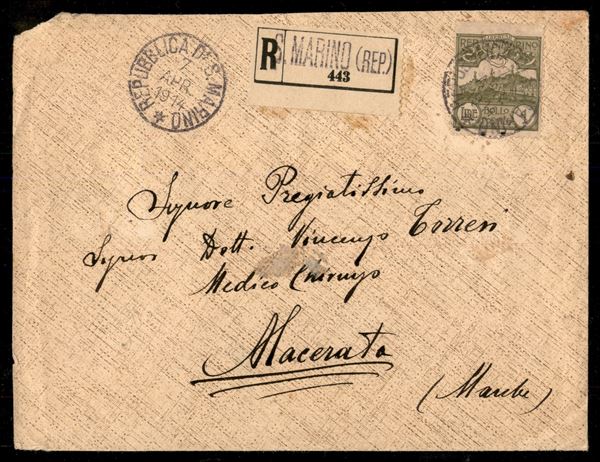 REPUBBLICA DI S. MARINO
7
APR.
1914
R
S. MARINO (REP.)
443
REP. S. MARINO
BOLLO
LIRE
1
Signore Pregiatissimo
Signor Dott. Vincenzo Torresi
Medico Chirurgo
Macerata
(Marche)